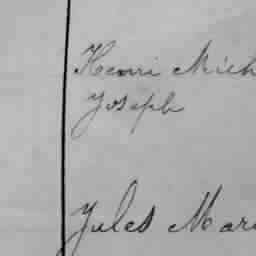 Henri Mich
Joseph
Jules Mari